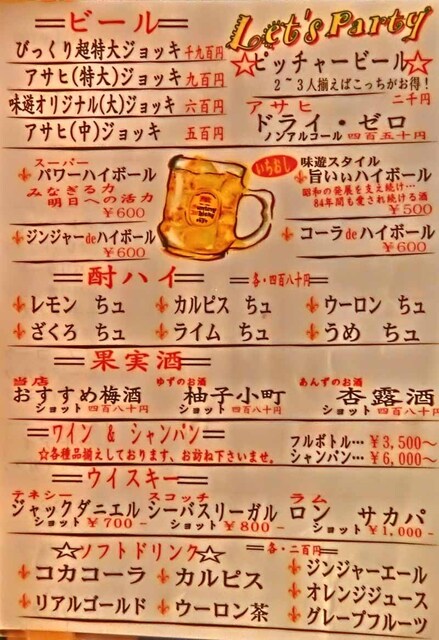 ビール
Let's Party
びっくり超特大ジョッキ 千九百円
アサヒ(特大)ジョッキ 九百円
味遊オリジナル(大)ジョッキ 六百円
アサヒ(中)ジョッキ 五百円
☆ピッチャービール☆
2~3人揃えばこっちがお得!
二千円
アサヒ
ドライ・ゼロ
ノンアルコール 四百五十円
スーパー
パワーハイボール
みなぎる力
明日への活力
￥600
ジンジャーdeハイボール
￥600
いちおし
味遊スタイル
旨いぃハイボール
昭和の発展を支え続け…
84年間も愛され続ける酒
￥500
コーラdeハイボール
￥600
酎ハイ
各・四百八十円
レモン ちュ
カルピス ちュ
ウーロン ちュ
ざくろ ちュ
ライム ちュ
うめ ちュ
果実酒
当店
おすすめ梅酒
ショット 四百八十円
ゆずのお酒
柚子小町
ショット 四百八十円
あんずのお酒
杏露酒
ショット 四百八十円
ワイン & シャンパン
☆各種品揃えしております、お訪ね下さいませ。
フルボトル…￥3,500~
シャンパン…￥6,000~
ウイスキー
テネシー
ジャックダニエル
ショット ￥700-
スコッチ
シーバスリーガル
ショット ￥800-
ラム
ロン サカパ
ショット ￥1,000-
☆ソフトドリンク☆
各・二百円
コカコーラ
カルピス
ジンジャーエール
リアルゴールド
ウーロン茶
オレンジジュース
グレープフルーツ